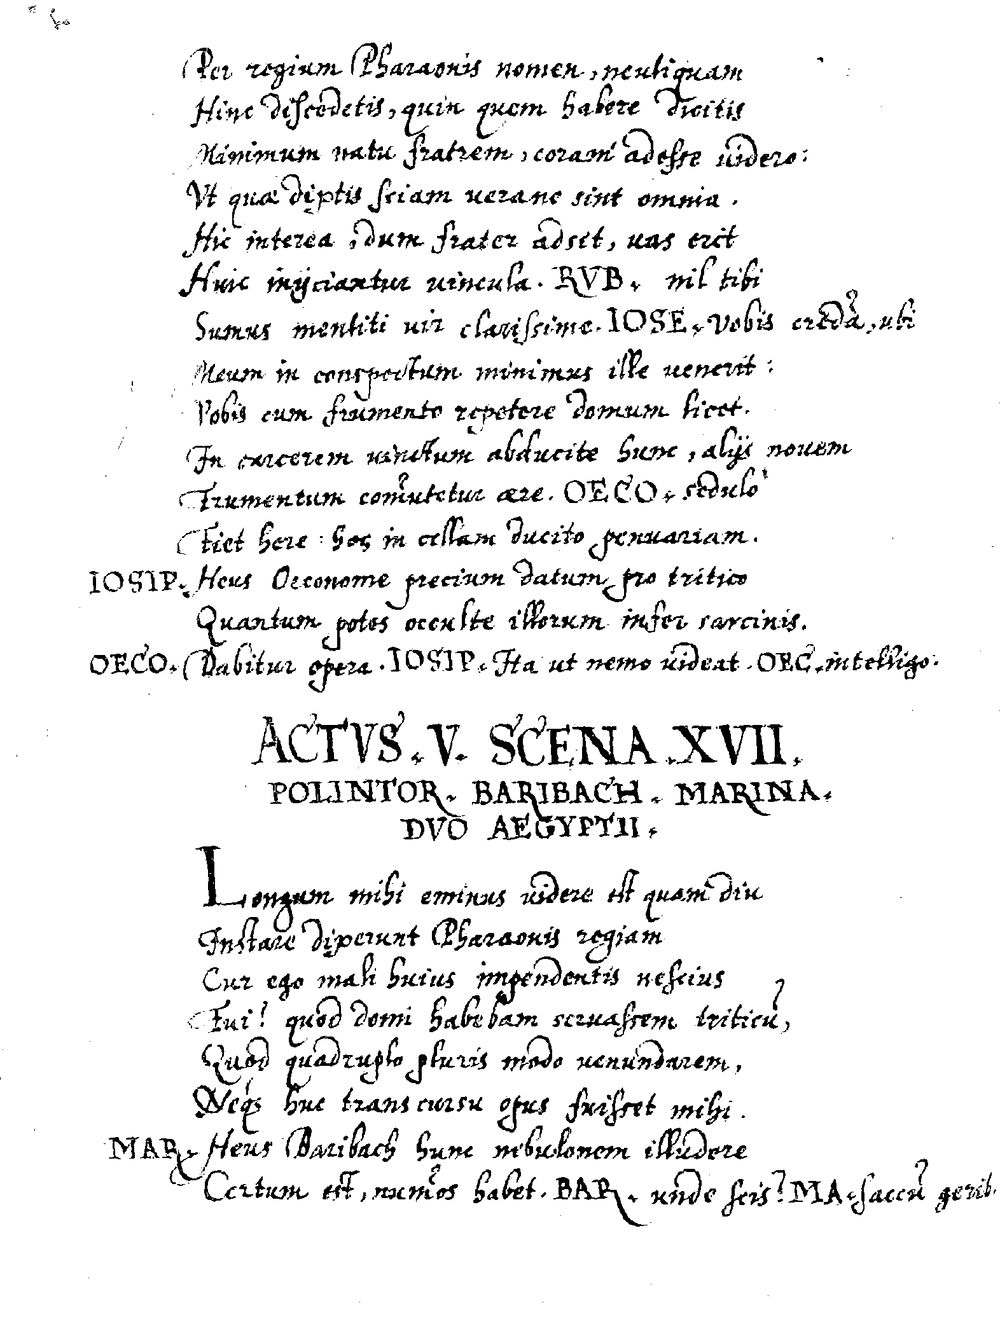 Per regium Pharaonis nomen, neutiquam
Hinc discedetis, quin quem habere dicitis
Minimum natu fratrem, coram adesse videro:
Vt quæ dixtis sciam uerane sint omnia.
Hic interea, dum frater adsit, uas erit
Huic inijciantur uincula. RVB. nil tibi
Sumus mentiti uir clarissime. IOSE. Vobis credā, ubi
Meum in conspectum minimus ille uenerit:
Vobis cum frumento repetere domum licet.
In carcerem uinctum abducite hunc, alijs nouem
Frumentum com̃utetur ære. OECO. sedulo
Fiet here: hos in cellam ducito penuariam.
IOSIP. Heus Oeconome precium datum pro tritico
Quantum potes occulte illorum infer sarcinis.
OECO. Dabitur opera. IOSIP. Ita ut nemo uideat. OEC. intelligo.
ACTVS. V. SCENA. XVII.
POLINTOR. BARIBACH. MARINA.
DVO AEGYPTII.
Longum mihi eminus uidere est quam diu
Instare dixerunt Pharaonis regiam
Cur ego mali huius impendentis nescius
Fui? quod domi habebam seruassem triticū,
Quod quadruplo pluris modo uenundarem,
Neq; huc transcursu opus fuisset mihi.
MAR. Heus Baribach hunc nebulonem illudere
Certum est, num̃os habet. BAR. unde scis? MA. saccū gerit.